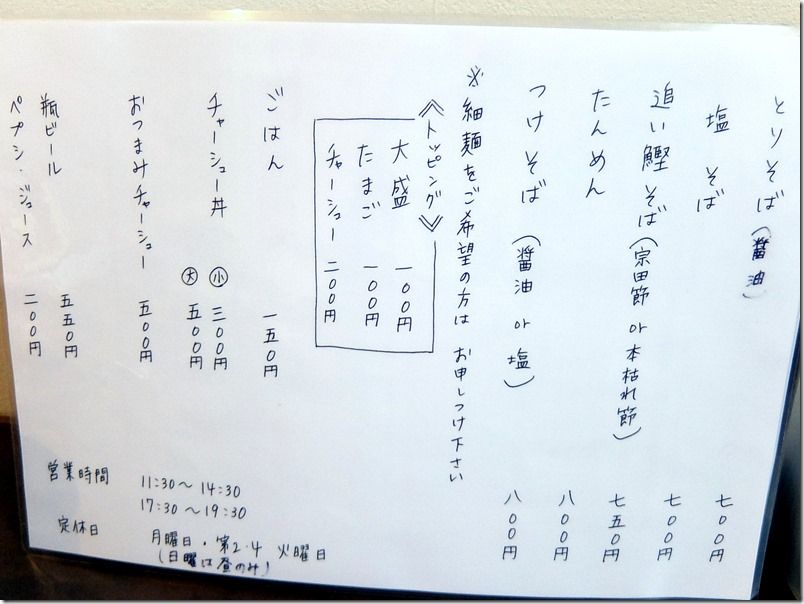 とりそば（醤油） 七〇〇円
塩そば 七〇〇円
追い鰹そば（宗田節 or 本枯れ節） 七五〇円
たんめん 八〇〇円
つけそば（醤油 or 塩） 八〇〇円
※細麺をご希望の方は お申しつけ下さい
《トッピング》
大盛 一〇〇円
たまご 一〇〇円
チャーシュー 二〇〇円
ごはん 一五〇円
チャーシュー丼 小 三〇〇円
大 五〇〇円
おつまみチャーシュー 五〇〇円
瓶ビール 五五〇円
ペプシ・ジュース 二〇〇円
営業時間 11:30～14:30
17:30～19:30
定休日 月曜日・第2・4 火曜日
（日曜は昼のみ）